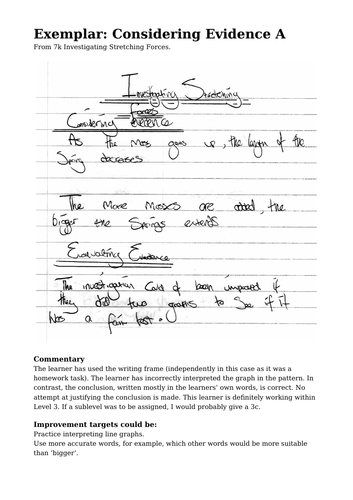 Exemplar: Considering Evidence A
From 7k Investigating Stretching Forces.
Investigating Stretching
Forces
Considering Evidence
As the mass goes up, the length of the
Spring decreases
The More Masses are added, the
bigger the Springs extends
Evaluating Evidence
The investigation Could of been improved if
they did two graphs to See if it
Was a fair test.
Commentary
The learner has used the writing frame (independently in this case as it was a
homework task). The learner has incorrectly interpreted the graph in the pattern. In
contrast, the conclusion, written mostly in the learners’ own words, is correct. No
attempt at justifying the conclusion is made. This learner is definitely working within
Level 3. If a sublevel was to be assigned, I would probably give a 3c.
Improvement targets could be:
Practice interpreting line graphs.
Use more accurate words, for example, which other words would be more suitable
than ‘bigger’.